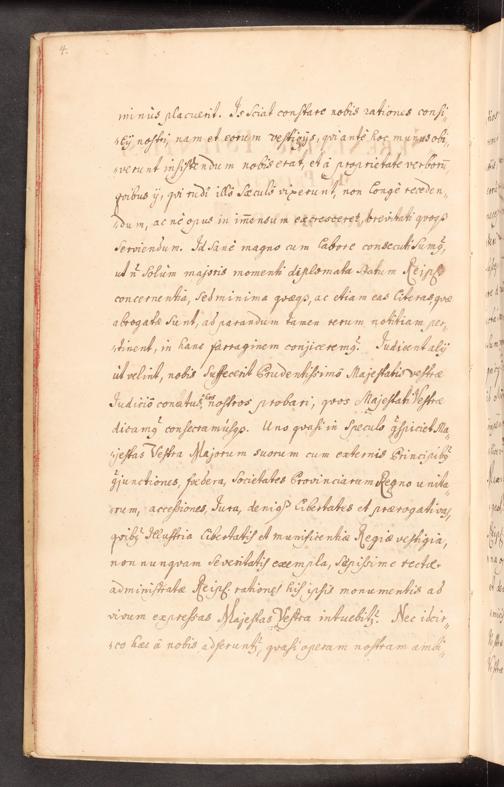 4.
minus placuerit. Is sciat constare nobis rationes consi„
„lij nostri, nam et eorum vestigijs, qui antè hoc munus obi„
„verunt insistendum nobis erat, et à proprietate verborũ
quibus ij, qui rudi illô Sæculô vixerunt, non longè receden„
„dum, ac nè opus in im̃ensum excresceret, brevitati quoqȝ
serviendum. Id sanè magno cum labore consecuti sumꝰ,
ut ñ solùm majoris momenti diplomata Statum Reipȝ
concernentia, sed minima quæqȝ, ac etiam eas literas, quæ
abrogatæ sunt, ad parandum tamen rerum notitiam per„
„tinent, in hanc farraginem conjiceremꝰ. Judicent alij
ut velint, nobis suffecerit Prudentissimô Majestatis vestræ
Judiciô conatus hos nostros probari, quos Majestati Vestræ
dicamꝰ consecramusqȝ. Uno quasi in Speculo ꝯspiciet Ma„
„jestas Vestra Majorum suorum cum externis Principibꝰ
ꝯjunctiones, fœdera, Societates Provinciarum Regno unita„
„rum, accessiones, Jura, deniqȝ Libertates et prærogativas,
quibꝰ Illustria Libertatis et munificentiæ Regiæ vestigia,
non nunquam severitatis exempla, sæpissime rectè
administratæ Reipȝ rationes his ipsis monumentis ad
vivum expressas Majestas Vestra intuebitꝰ. Nec idcir„
„co hæc à nobis adferuntꝰ, quasi operam nostram ambi„